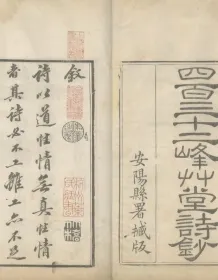 四百三十二峰草堂詩鈔
安陽縣署藏版
叙
詩以道性情無真性情
者其詩必不工雖工亦不足